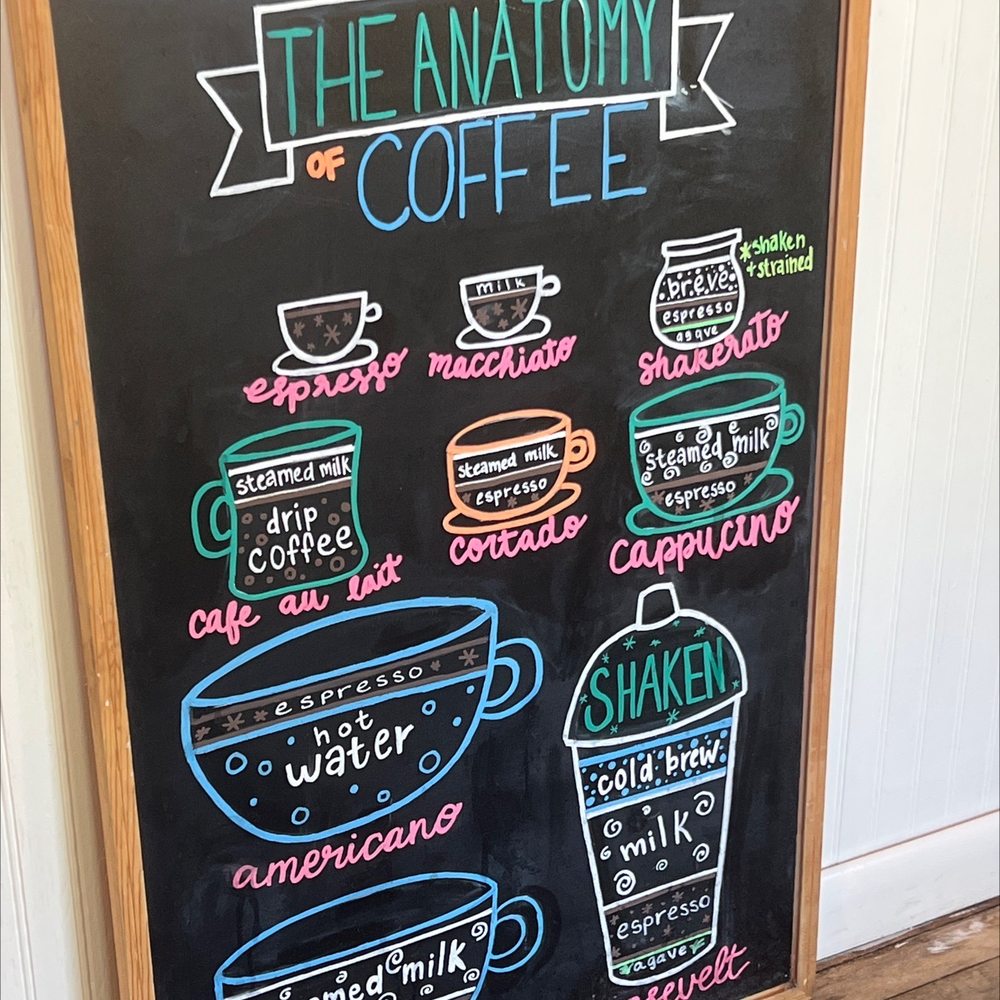 THE ANATOMY
OF COFFEE
espresso
milk
macchiato
breve
espresso
agave
*shaken
+ strained
shakerato
steamed milk
drip
coffee
cafe au lait
steamed milk
espresso
cortado
steamed milk
espresso
cappucino
espresso
hot
water
americano
SHAKEN
cold brew
milk
espresso
agave
milk